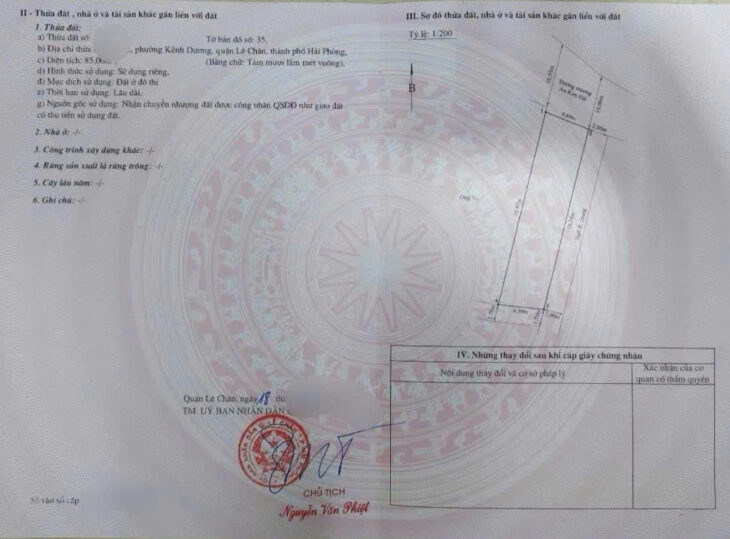 II - Thửa đất, nhà ở và tài sản khác gắn liền với đất
1. Thửa đất:
a) Thửa đất số: Tờ bản đồ số: 35,
b) Địa chỉ thửa , phường Kênh Dương, quận Lê Chân, thành phố Hải Phòng,
c) Diện tích: 85,0 (Bằng chữ: Tám mươi lăm mét vuông),
d) Hình thức sử dụng: Sử dụng riêng,
đ) Mục đích sử dụng: Đất ở đô thị
e) Thời hạn sử dụng: Lâu dài,
g) Nguồn gốc sử dụng: Nhận chuyển nhượng đất được công nhận QSDĐ như giao đất
có thu tiền sử dụng đất.
2. Nhà ở: -/-
3. Công trình xây dựng khác: -/-
4. Rừng sản xuất là rừng trồng: -/-
5. Cây lâu năm: -/-
6. Ghi chú: -/-
Quận Lê Chân, ngày 18 th
TM. UỶ BAN NHÂN DÂN
CHỦ TỊCH
Nguyễn Văn Phiệt
Số vào sổ cấp
III. Sơ đồ thửa đất, nhà ở và tài sản khác gắn liền với đất
Tỷ lệ: 1/200
B
Đường mương
An Kim Hải
1
4,60m
2,00m
Ông V
4,50m
2,00m
IV. Những thay đổi sau khi cấp giấy chứng nhận
Nội dung thay đổi và cơ sở pháp lý
Xác nhận của cơ
quan có thẩm quyền